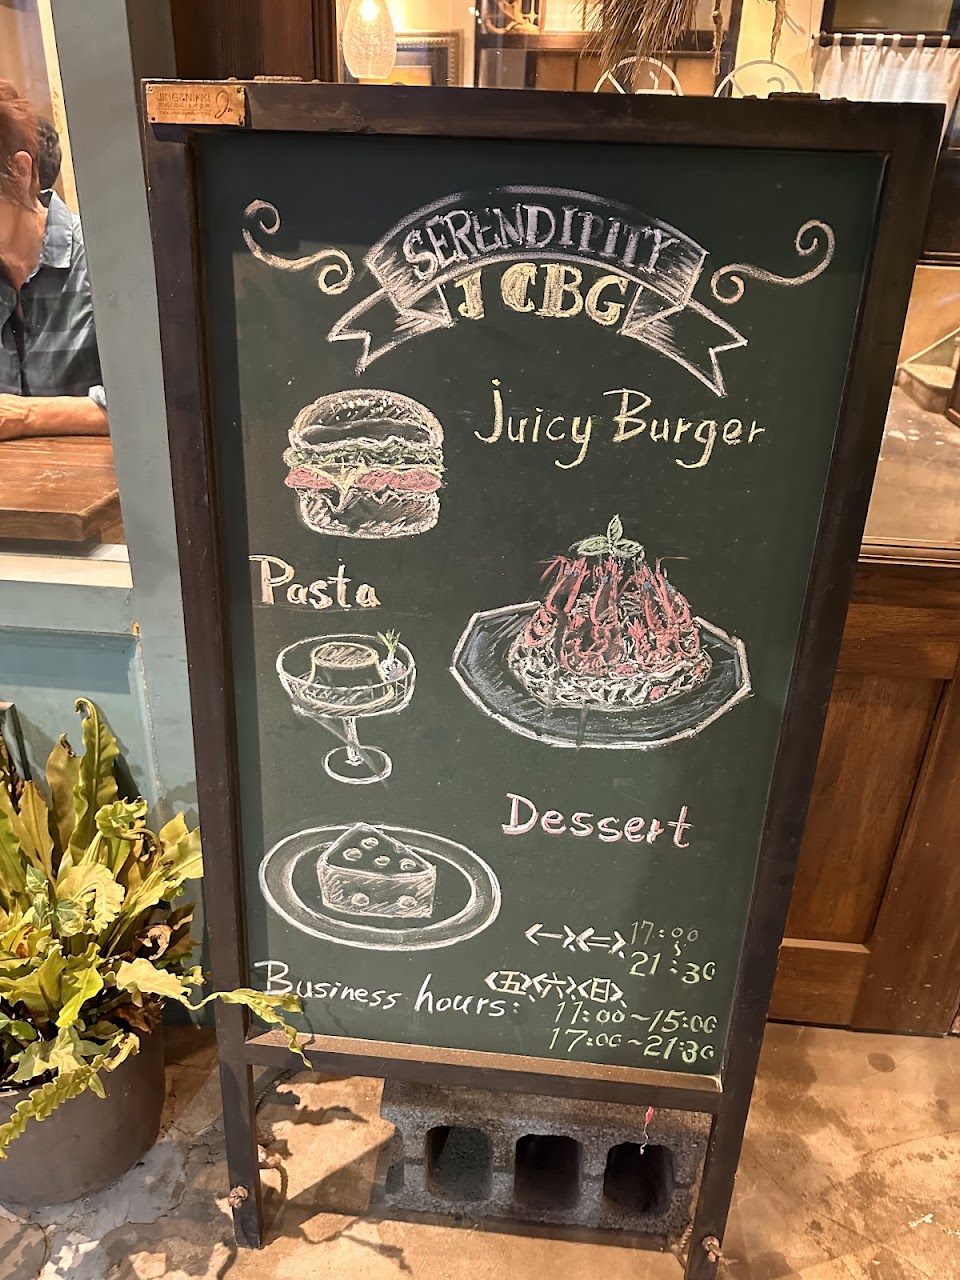 JING&NIKKI
SERENDIPITY
JCBG
Juicy Burger
Pasta
Dessert
<一>、<二>、17:00
~
21:30
Business hours:
<五><六><日>、
11:00~15:00
17:00~21:30